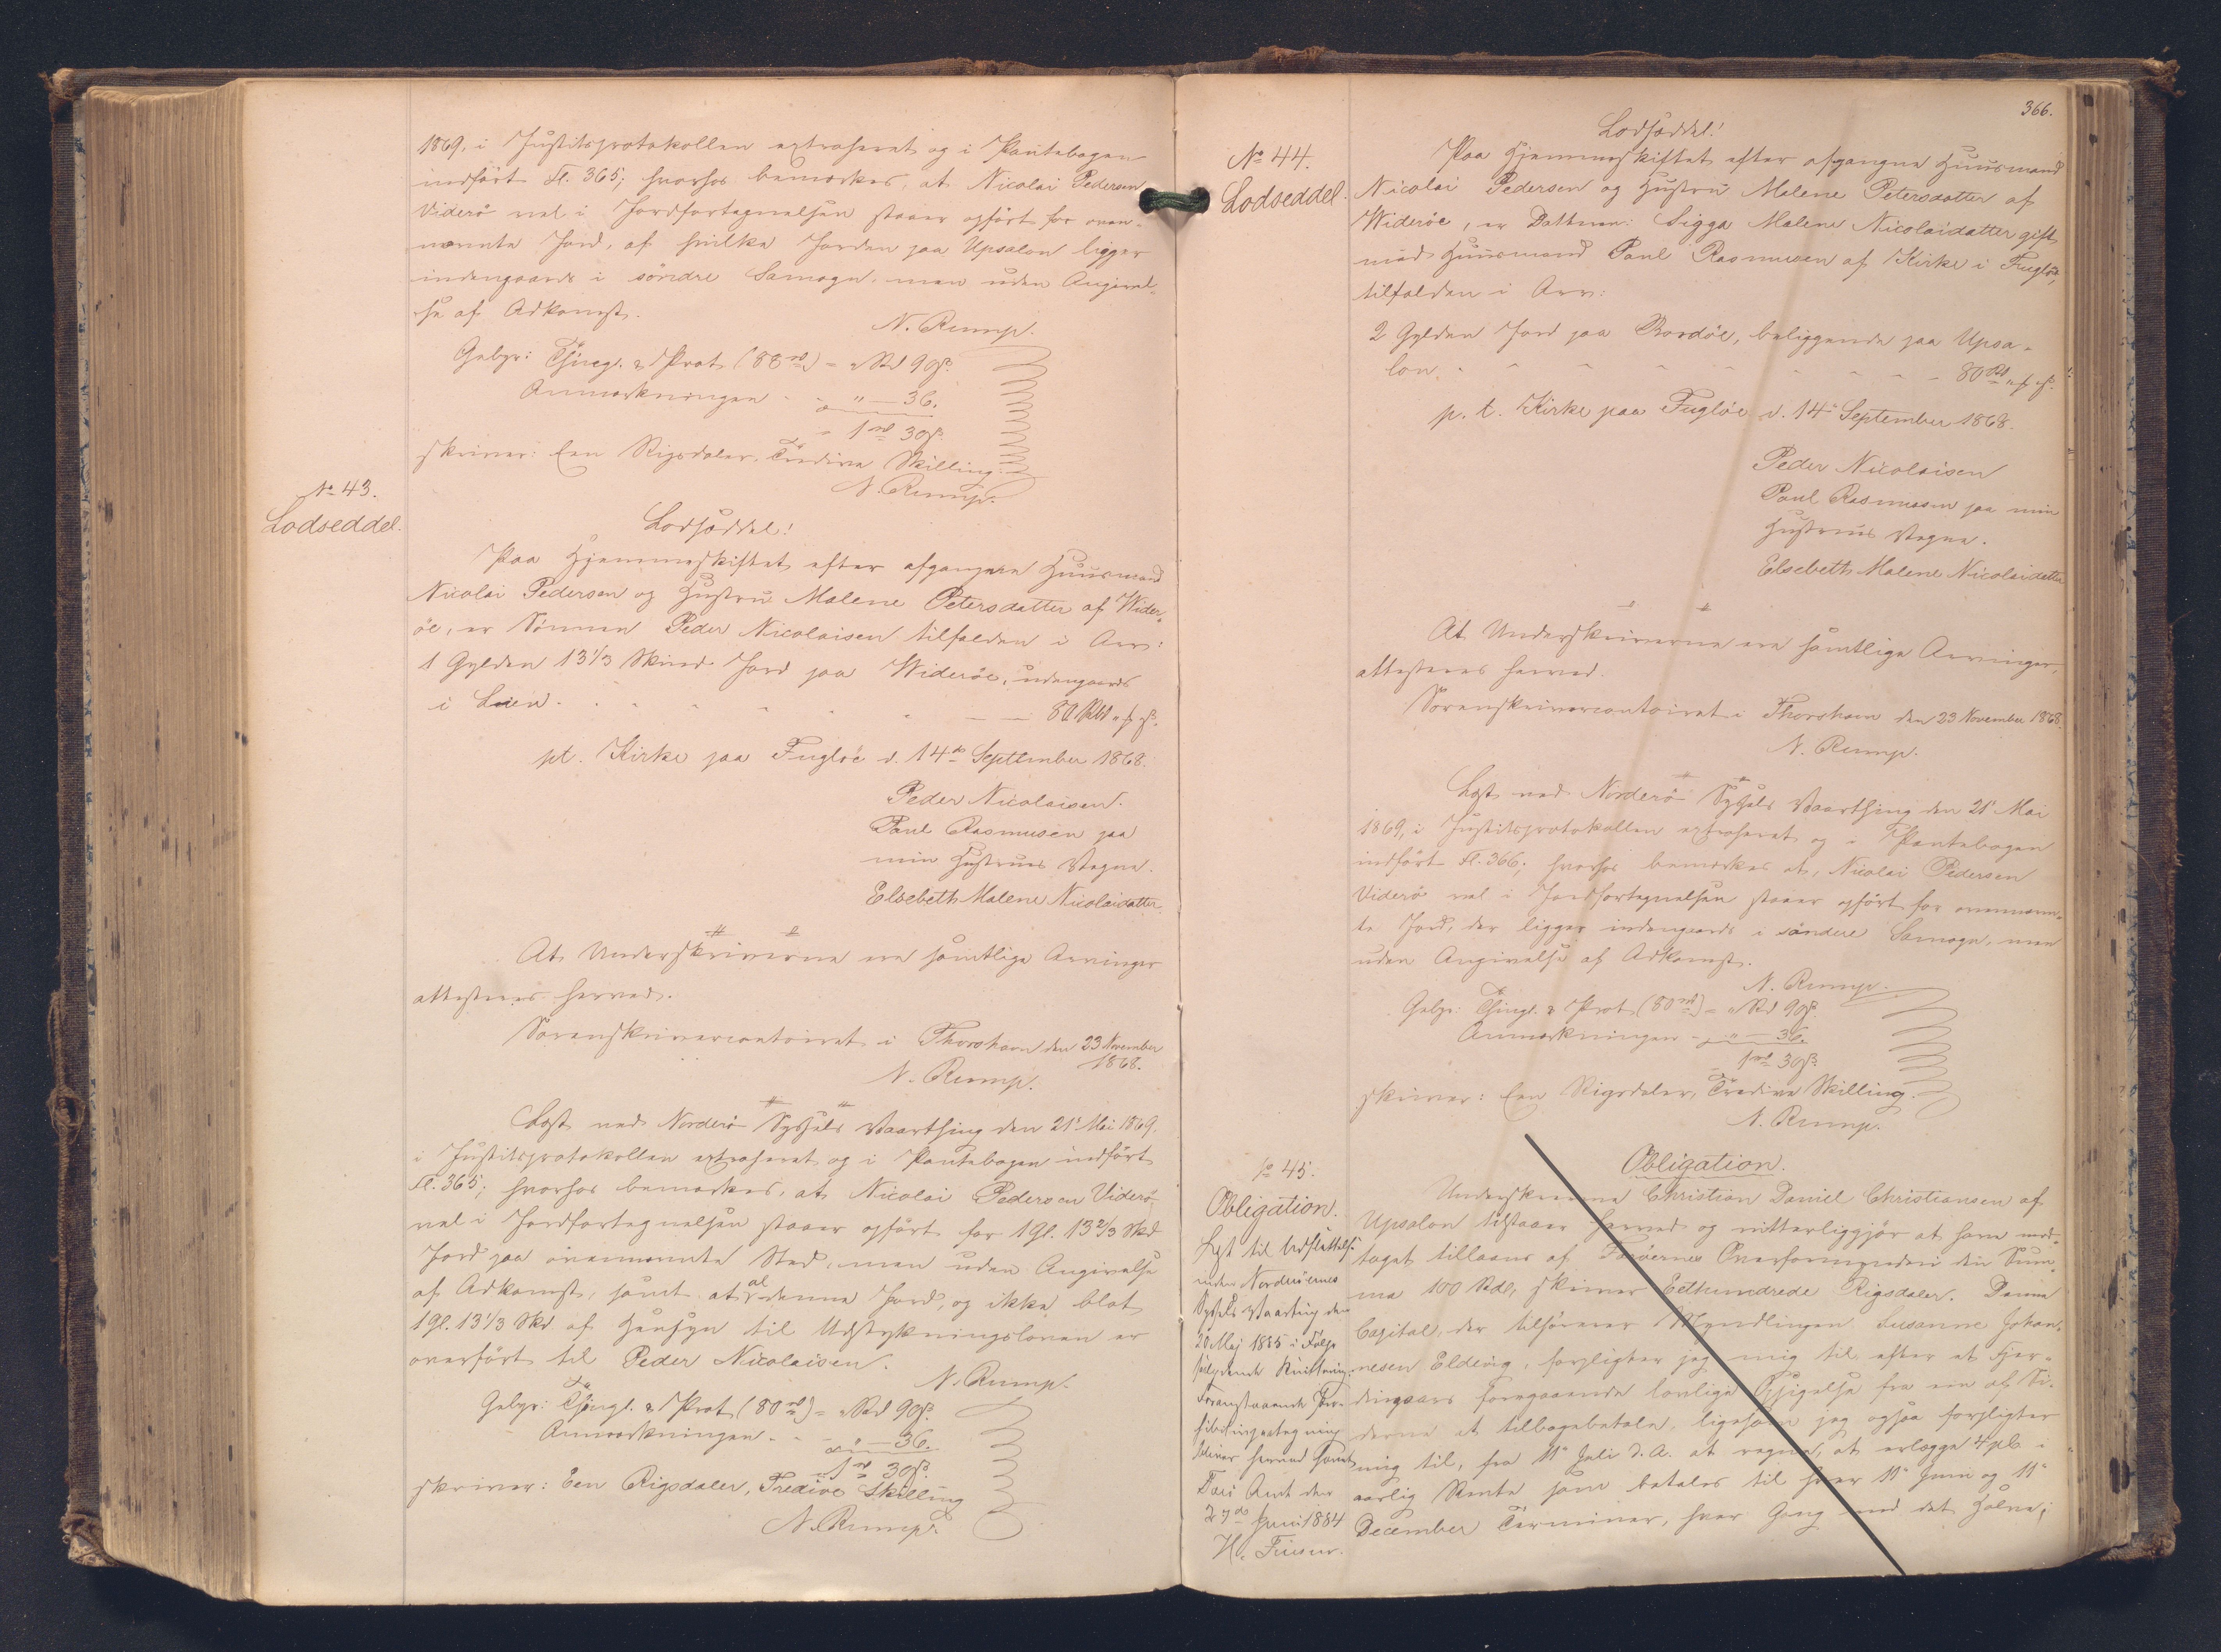 1869, i Justitsprotokollen extraheret og i Pantebogen
indført Fl. 365; hvorhos bemærkes, at Nicolai Pedersen
Viderö vel i Jordfortegnelsen staaer opført for oven-
nævnte Jord, af hvilke Jorden paa Upsalon ligger
indengaards i söndre Samogn, men uden Angivel-
se af Adkomst.
N. Rump.
Gebyr: Thingl. & Prot. (88 rd) = " Rd 90 ß.
Anmærkningen - " — 36.
1 rd 30 ß.
skriver: Een Rigsdaler, Tredive Skilling.
N. Rump.
No 43.
Lodseddel.
Lodseddel!
Paa Hjemmeskiftet efter afgangne Huusmand
Nicolai Pedersen og Hustru Malene Petersdatter af Wider-
öe, er Sönnen Peder Nicolaisen tilfalden i Arv:
1 Gylden 13 1/3 Skind Jord paa Wideröe, udengaards
i Leien - - - - - - 80 Rbd " f " ß.
pt. Kirke paa Fuglöe d. 14de September 1868.
Peder Nicolaisen.
Poul Rasmusen paa
min Hustrues Vegne.
Elsebeth Malene Nicolaidatter.
At Underskriverne ere samtlige Arvinger
attesteres herved.
Sorenskrivercontoiret i Thorshavn den 23 November
1868.
N. Rump.
Læst ved Norderö Syssels Vaarthing den 21' Mai 1869.
i Justitsprotokollen extraheret og i Pantebogen indført
Fl. 365; hvorhos bemærkes, at Nicolai Pedersen Viderö
vel i Jordfortegnelsen staaer opført for 1 Gl. 13 2/3 Skd
Jord paa ovennævnte Sted, men uden Angivelse
af Adkomst, samt at al denne Jord, og ikke blot
1 Gl. 13 1/3 Skd af Hensyn til Udstykningsloven er
overført til Peder Nicolaisen.
N. Rump.
Gebyr: Thingl. & Prot. (80 rd) = " Rd 90 ß.
Anmærkningen - - " — 36.
1 rd 30 ß.
skriver: Een Rigsdaler, Tredive Skilling
N. Rump.
366.
No 44.
Lodseddel.
Lodseddel!
Paa Hjemmeskiftet efter afgangne Huusmand
Nicolai Pedersen og Hustru Malene Petersdatter af
Wideröe, er Datteren: Sigga Malene Nicolaidatter gift
med Huusmand Poul Rasmusen af Kirke i Fuglöe,
tilfalden i Arv:
2 Gylden Jord paa Bordöe, beliggende paa Upsa-
lon - - - - - - - 80 Rd " f " ß.
p. t. Kirke paa Fuglöe d. 14' September 1868.
Peder Nicolaisen
Poul Rasmusen paa min
Hustrues Vegne.
Elsebeth Malene Nicolaidatter
At Underskriverne ere samtlige Arvinger,
attesteres herved.
Sorenskrivercontoiret i Thorshavn den 23 November 1868.
N. Rump.
Læst ved Norderö Syssels Vaarthing den 21' Mai
1869, i Justitsprotokollen extraheret og i Pantebogen
indført Fl. 366; hvorhos bemærkes at, Nicolai Pedersen
Viderö vel i Jordfortegnelsen staaer opført for ovennævn-
te Jord, der ligger indengaards i söndere Samogn, men
uden Angivelse af Adkomst.
N. Rump.
Gebyr: Thingl. & Prot. (80 rd) = " Rd 90 ß.
Anmærkningen - " — 36.
1 rd 30 ß.
skriver: Een Rigsdaler, Tredive Skilling.
N. Rump.
No 45.
Obligation.
Læst til Udslettelse
under Norderöernes
Syssels Vaarting den
20 Maj 1885 i Følge
Foranstaaende
bliver herved
Færö Amt den
27de Juni 1884
Obligation.
Underskrevne Christian Daniel Christiansen af
Upsalon tilstaaer herved og vitterliggjør at have mod-
taget tillaans af Færöernes Overformynderi den Sum-
ma 100 Rdl., skriver Eethundrede Rigsdaler. Denne
Capital, der tilhører Myndlingen Susanne Johan-
nesen Elding, forpligter jeg mig til efter et Fjer-
dingaars foregaaende lovlige Opsigelse fra een af Si-
derne at tilbagebetale, ligesom jeg ogsaa forpligter
mig til, fra 11' Juli d. A. at regne, at erlægge 4 pCt. i
aarlig Rente som betales til hver 11' Juni og 11'
December Terminer, hver Gang med det Halve;